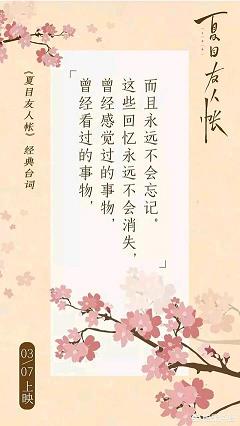 夏目友人帐
《夏目友人帐》经典台词
「曾经看过的事物，
曾经感觉过的事物，
这些回忆永远不会消失，
而且永远不会忘记。」
03/07上映